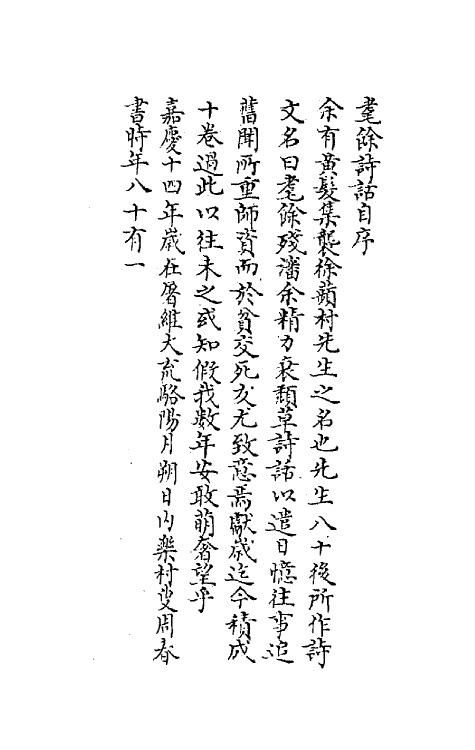 耄餘詩話自序
余有黃髮集襲徐蘋村先生之名也先生八十後所作詩
文名曰耄餘殘瀋余精力衰頹草詩話以遣日憶往事追
舊聞所重師資而於貧交死友尤致意焉獻歲迄今積成
十卷過此以往未之或知假我數年安敢萌奢望乎
嘉慶十四年歲在屠維大荒駱陽月朔日內樂村叟周春
書時年八十有一